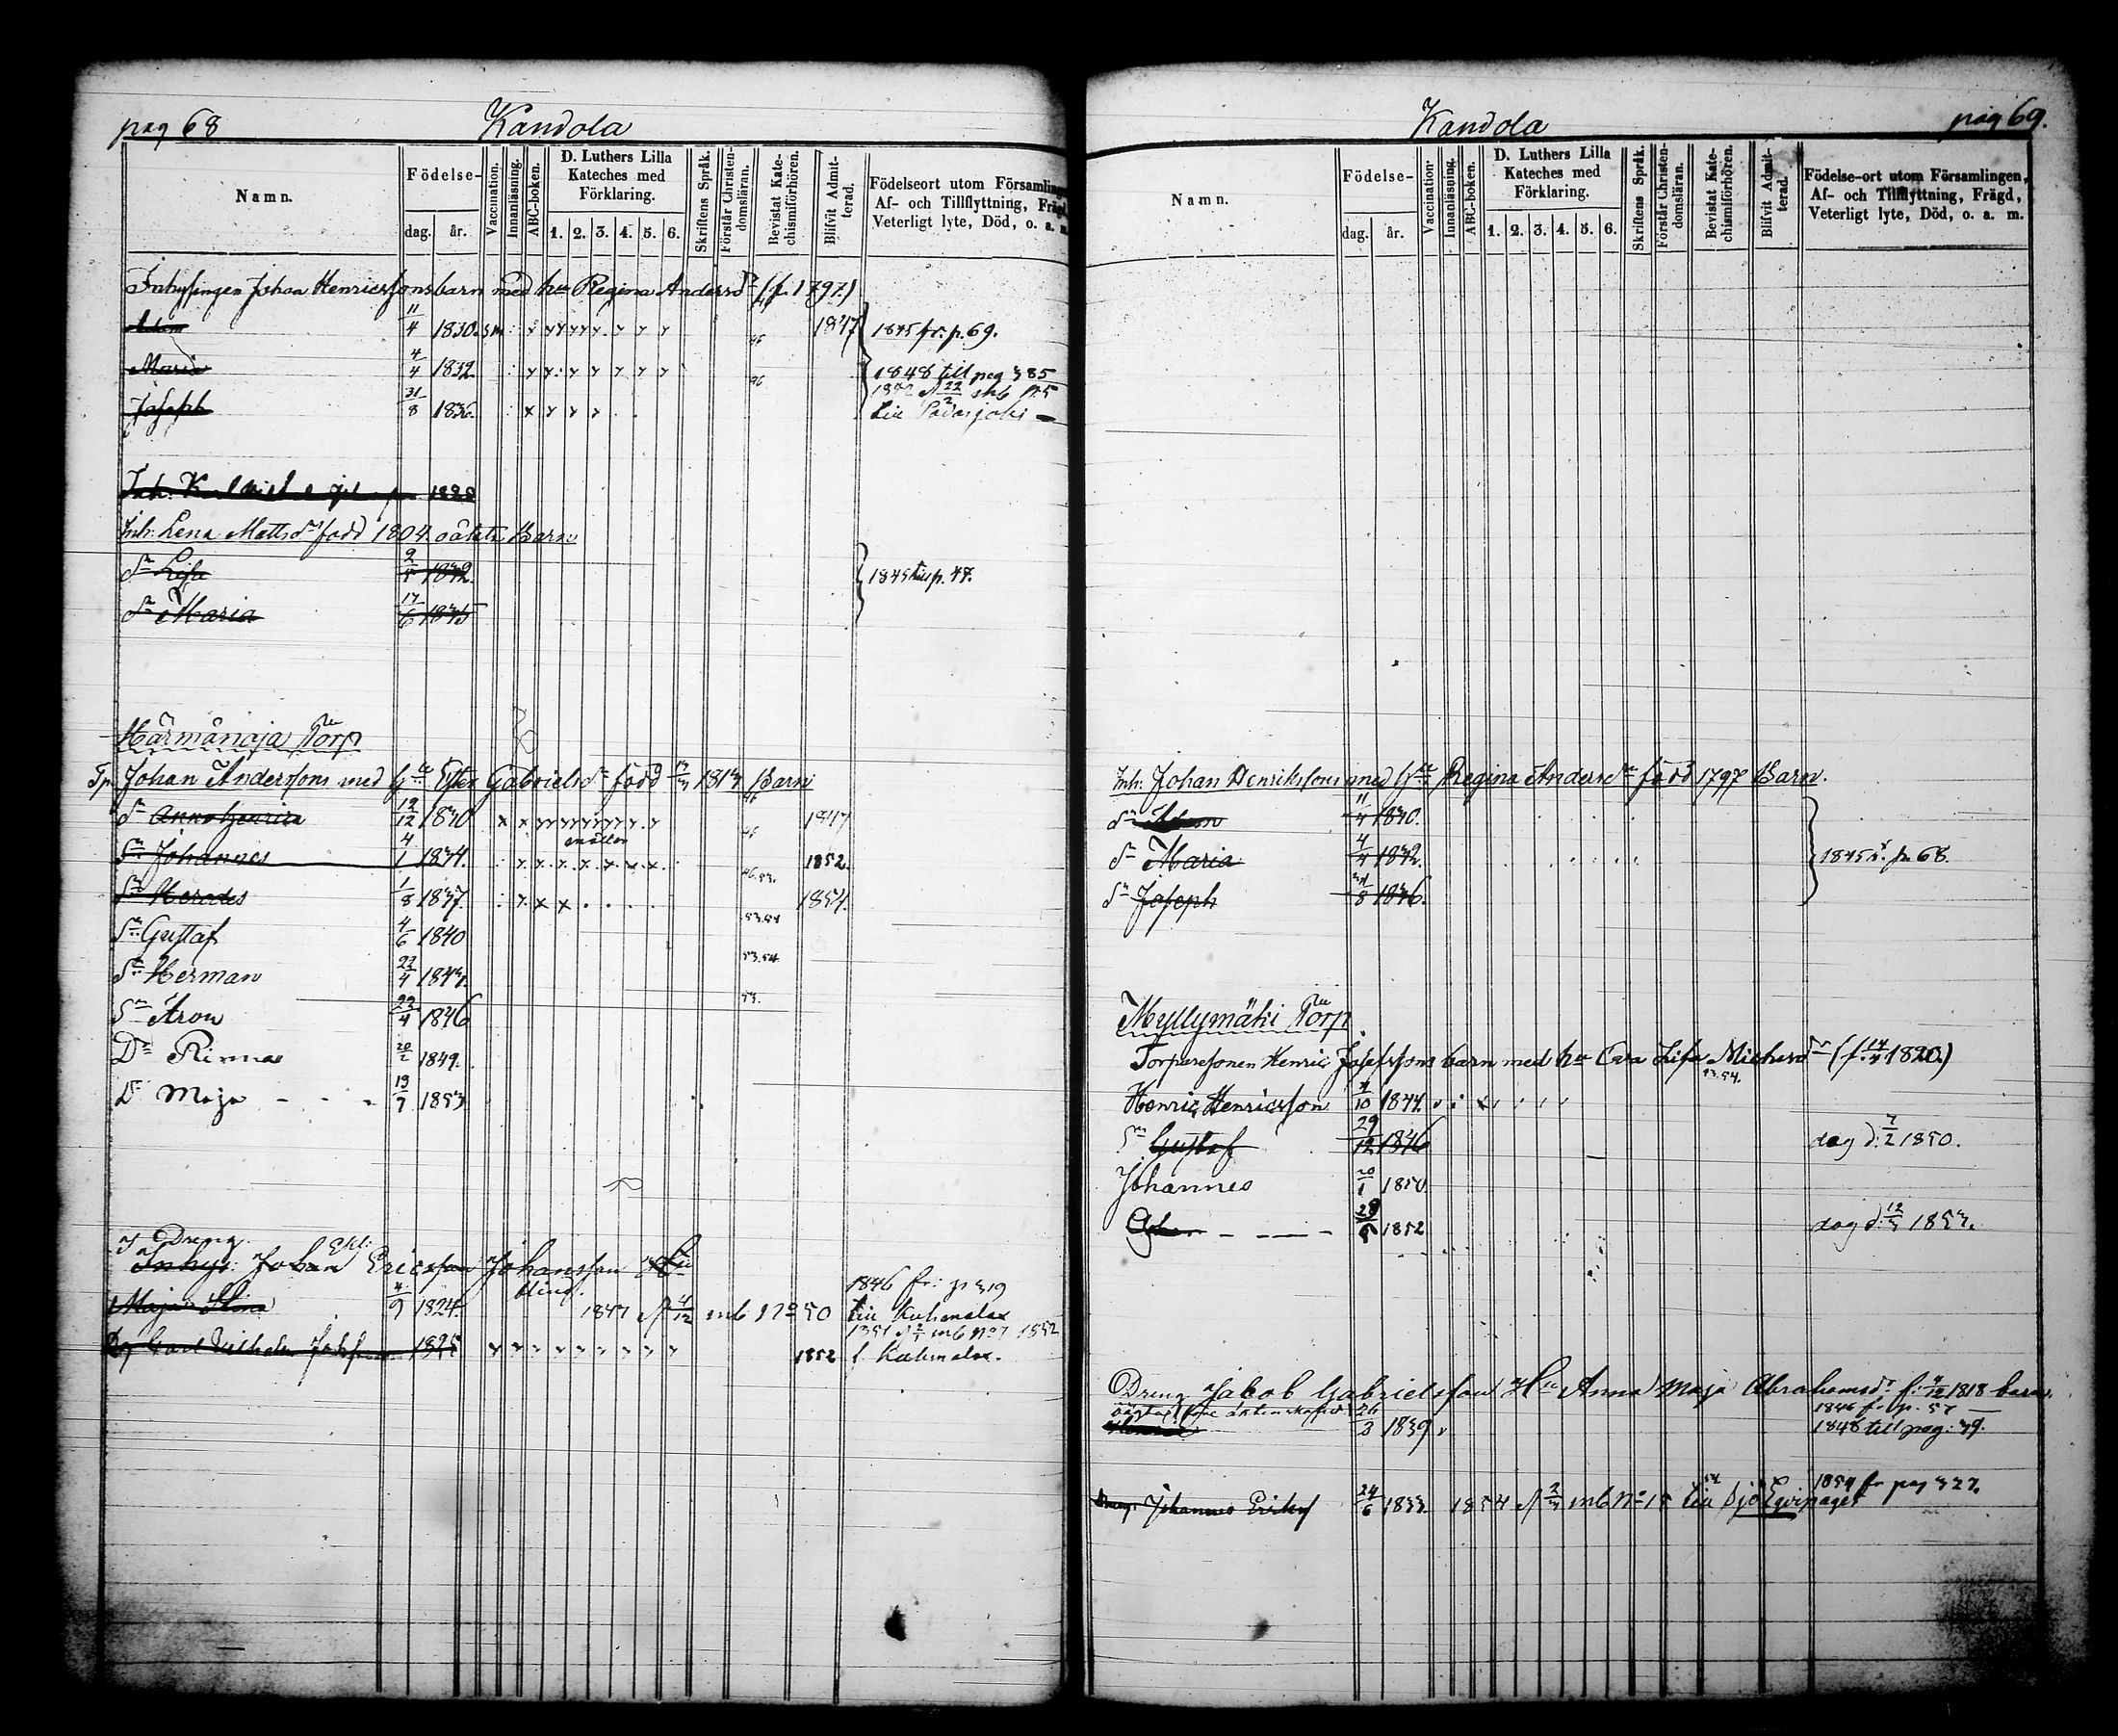 pag 68 Kandola
Namn. Födelse- dag. år. Vaccination. Innanläsning. ABC-boken. D. Luthers Lilla Kateches med Förklaring. 1. 2. 3. 4. 5. 6. Skriftens Språk. Förstår Christendomsläran. Bevistat Katechismiförhören. Blifvit Admitterad. Födelseort utom Församlingen Af- och Tillflyttning, Frägd, Veterligt lyte, Död, o. a. m.
Inhysingen Johan Henricssons barn med hu Regina Andersdr (f. 1797.)
Adam 11/4 1830. 1847 1845 fr. p. 69.
Maria 4/4 1832 1848 till pag 385
Joseph 31/8 1836. till Padasjoki
1828
Inh: Lena Mattsdr född 1804. oäkta Barn
Dr Lisa 9/5 1842 1845 till p. 47.
Dr Maria 17/6 1845
Härmänoja Torp
Tp. Johan Anderssons med Hu Ester Gabrielsdr född 1813 Barn
Dr Anna Henrica 19/12 1830 1847
Sn Johannes 4/1 1834. 1852
Sn Herodes 1/8 1837. 1854
Sn Gustaf 4/6 1840 53.54
Sn Herman 22/4 1843. 53.54
Sn Aron 22/4 1846 53.
Dr Rinna 20/2 1849.
Dr Maja - - - 19/7 1853
Dreng.
Inhys: Johan Ericsson Johansson
blind.
1846 fr: p 319
Maja Stina 4/9 1824. 1847 4/12 mb No 50 till Kuhmalax
Dr Carl Wilhelm 1825 1852 f. Kuhmalax.
Kandola pag 69.
Namn. Födelse- dag. år. Vaccination. Innanläsning. ABC-boken. D. Luthers Lilla Kateches med Förklaring. 1. 2. 3. 4. 5. 6. Skriftens Språk. Förstår Christendomsläran. Bevistat Katechismiförhören. Blifvit Admitterad. Födelse-ort utom Församlingen, Af- och Tillflyttning, Frägd, Veterligt lyte, Död, o. a. m.
Inh: Johan Henrikssons med Hu Regina Andersdr född 1797 Barn.
Sn Adam 11/4 1830.
Dr Maria 4/4 1832. 1845 t. p. 68.
Sn Joseph 31/8 1836.
Myllymäki Torp
Torparesonen Henric Josefssons barn med hu Eva Lisa Michelsdr (f. 1820.)
Henric Henricsson 4/10 1844.
Sn Gustaf 29/12 1846 dog d. 7/2 1850.
Johannes 20/1 1850
Johan - - - 28/5 1852 dog d. 12/3 1853.
Dreng Jakob Gabrielsson Hu Anna Maja Abrahamsdr f: 4/12 1818 barn.
26/3 1839 1846 fr. p. 57
1848 till pag: 39.
1854 fr pag 327.
Dreng Johannes Eriks 24/6 1833. 1854 mb No 15 till Sjö Eqvipaget